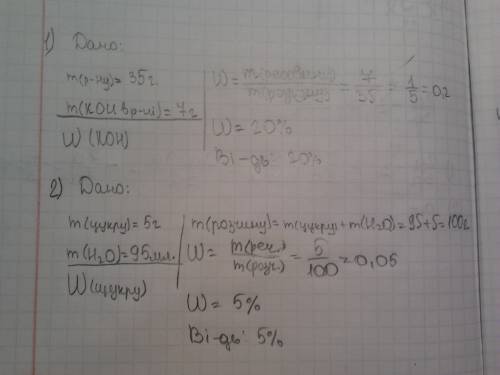 1) Дано:
m(р-ну)= 35г.
m(KOH в р-ні)= 7г
W (KOH)
W = m(речовини)/m(розчину) = 7/35 = 1/5 = 0,2
W = 20%
Ві-дь: 20%
2) Дано:
m(цукру)= 5г
m(H₂O)=95мл.
W(цукру)
m(розчину)= m(цукру)+m(H₂O)=95+5=100г
W = m(реч.)/m(розч.) = 5/100 = 0,05
W = 5%
Ві-дь: 5%